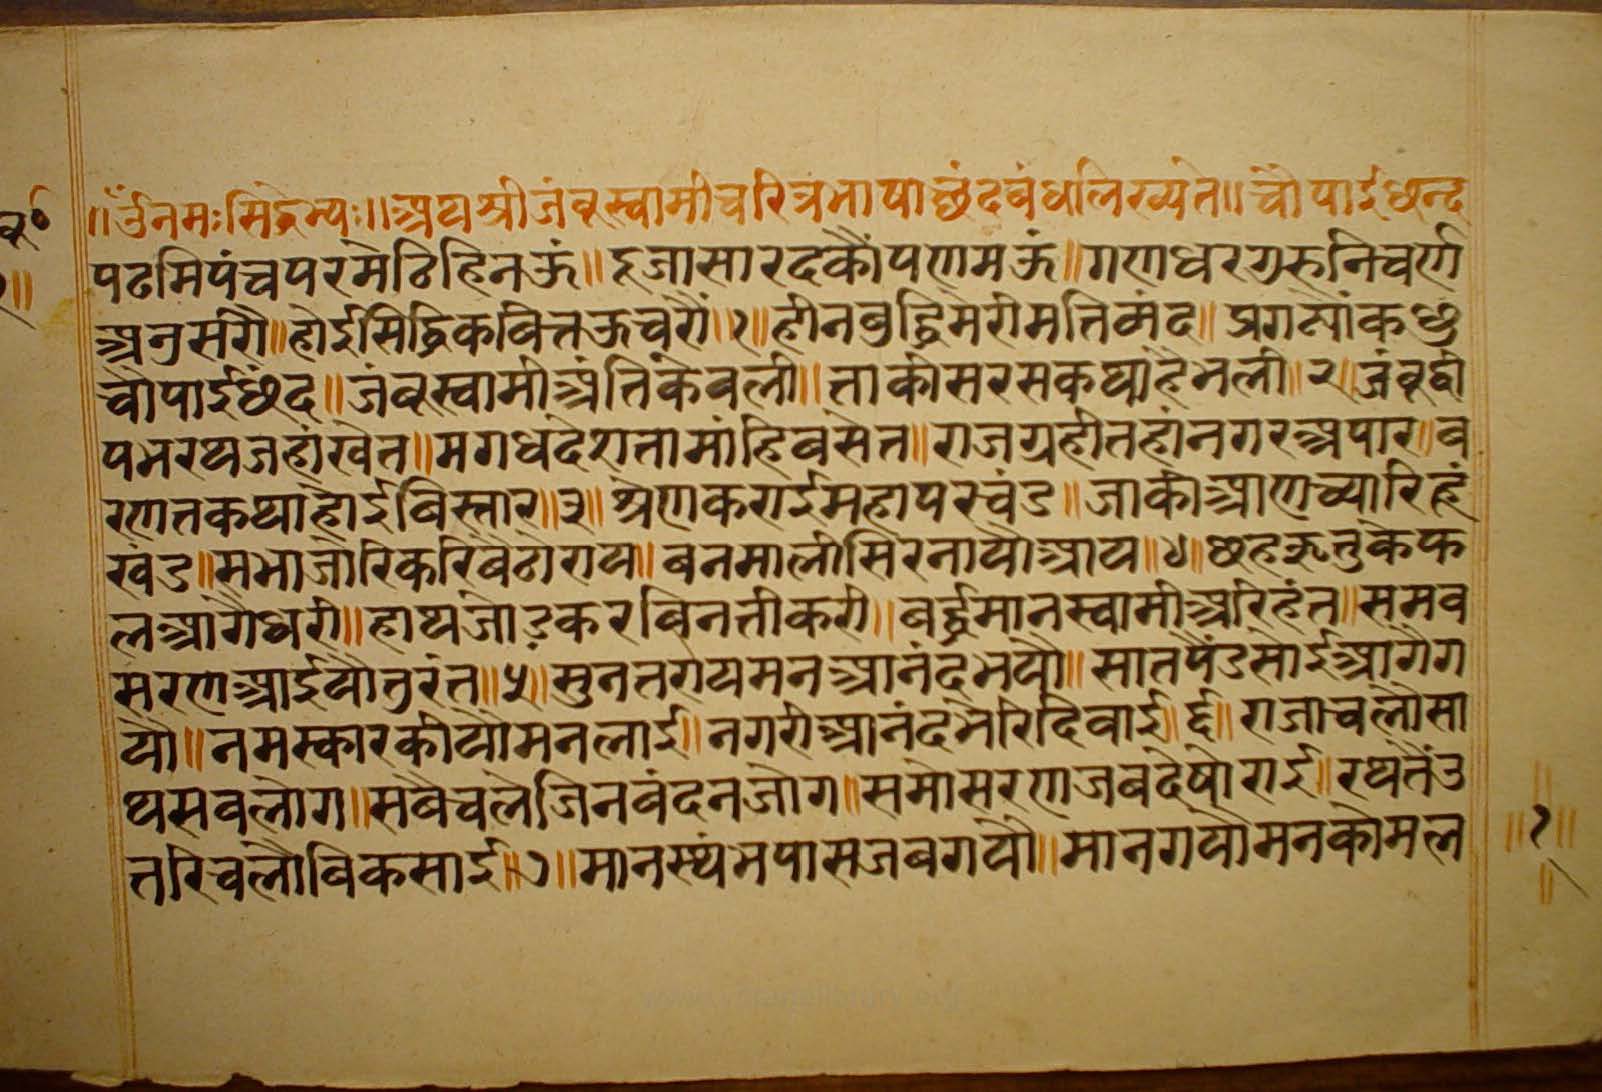 ॥ ॐ नमः सिद्धेभ्यः ॥ अथ श्री जंबूस्वामी चरित्र भाषा छंद बंध लिख्यते ॥ चौपाई छन्द
पढमि पंच परमेठिहि नऊं ॥ दूजा सारद कौं पणमऊं ॥ गणधर गुरु नि चर्ण
अनुसरौं ॥ होई सिद्धि कवित्त ऊचरौं ॥ १ ॥ हीन बुद्धि मेरी मति मंद ॥ प्रगट्यां कछु
चौपाई छंद ॥ जंबूस्वामी अंति केवली ॥ ताकी सरस कथा है भली ॥ २ ॥ जंबूदी
प भरथ जहां खेत ॥ मगध देश ता मांहि बसेत ॥ राजग्रही तहां नगर अपार ॥ ब
रणत कथा होई बिस्तार ॥ ३ ॥ श्रेणक राई महा परचंड ॥ जाकी आण च्यारि हूं
खंड ॥ सभा जोरि करि बैठो राय ॥ बनमाली सिर नायो आय ॥ ४ ॥ छह ऋतु के फ
ल आगै धरी ॥ हाथ जोड़ कर बिनती करी ॥ बर्द्धमान स्वामी अरिहंत ॥ समव
सरण आईयो तुरंत ॥ ५ ॥ सुनत राय मन आनंद भयो ॥ सात पैंड सोई आगै ग
यो ॥ नमस्कार कीयो मन लाई ॥ नगरी आनंद भेरि दिवाई ॥ ६ ॥ राजा चलौ सा
थ सब लोग ॥ सबै चले जिन वंदन जोग ॥ समोसरण जब देषो राई ॥ रथ तैं उ
तरि चलौ बिकसाई ॥ ७ ॥ मानस्थंभ पास जब गयौ ॥ मान गयौ मन कोमल
॥ १ ॥